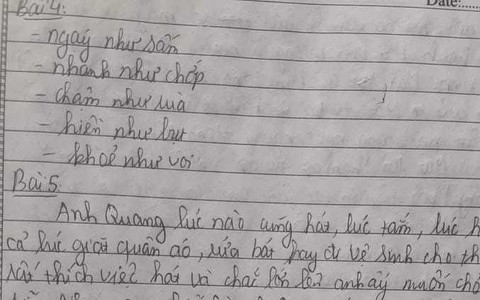 Bài 4: Date:......
- ngáy như sấm
- nhanh như chớp
- chậm như rùa
- hiền như bụt
- khoẻ như voi
Bài 5:
Anh Quang lúc nào cũng hát, lúc tắm, lúc h
cả lúc giặt quần áo, rửa bát hay đi vệ sinh cho th
rất thích việc hát vì chắc lớn lên anh ấy muốn